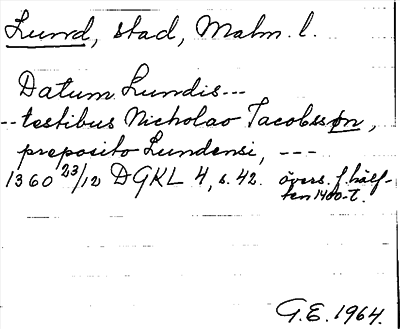 Lund, stad, Malm. l.
Datum Lundis---
--testibus Nicholao Jacobssøn,
preposito Lundensi, ---
1360 23/12 DGKL 4, s. 42. övers. f. hälf-
ten 1400-t.
G.E. 1964.